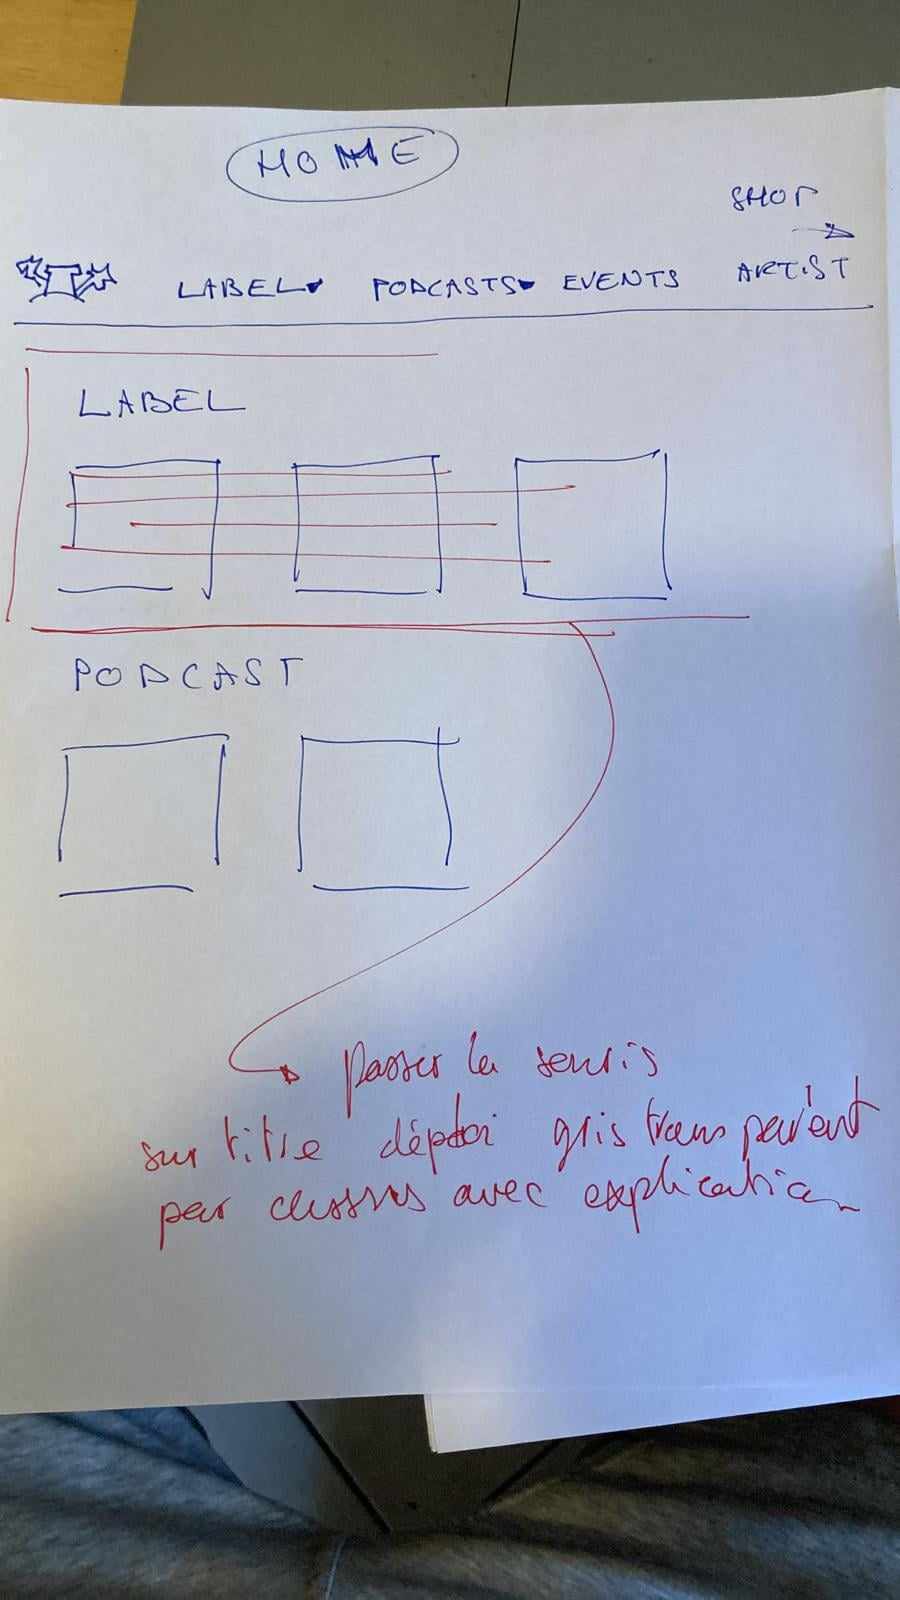 HOME
SHOP
LABEL PODCASTS EVENTS ARTIST
LABEL
PODCAST
passer la souris
sur titre gris transparent
par dessus avec explication